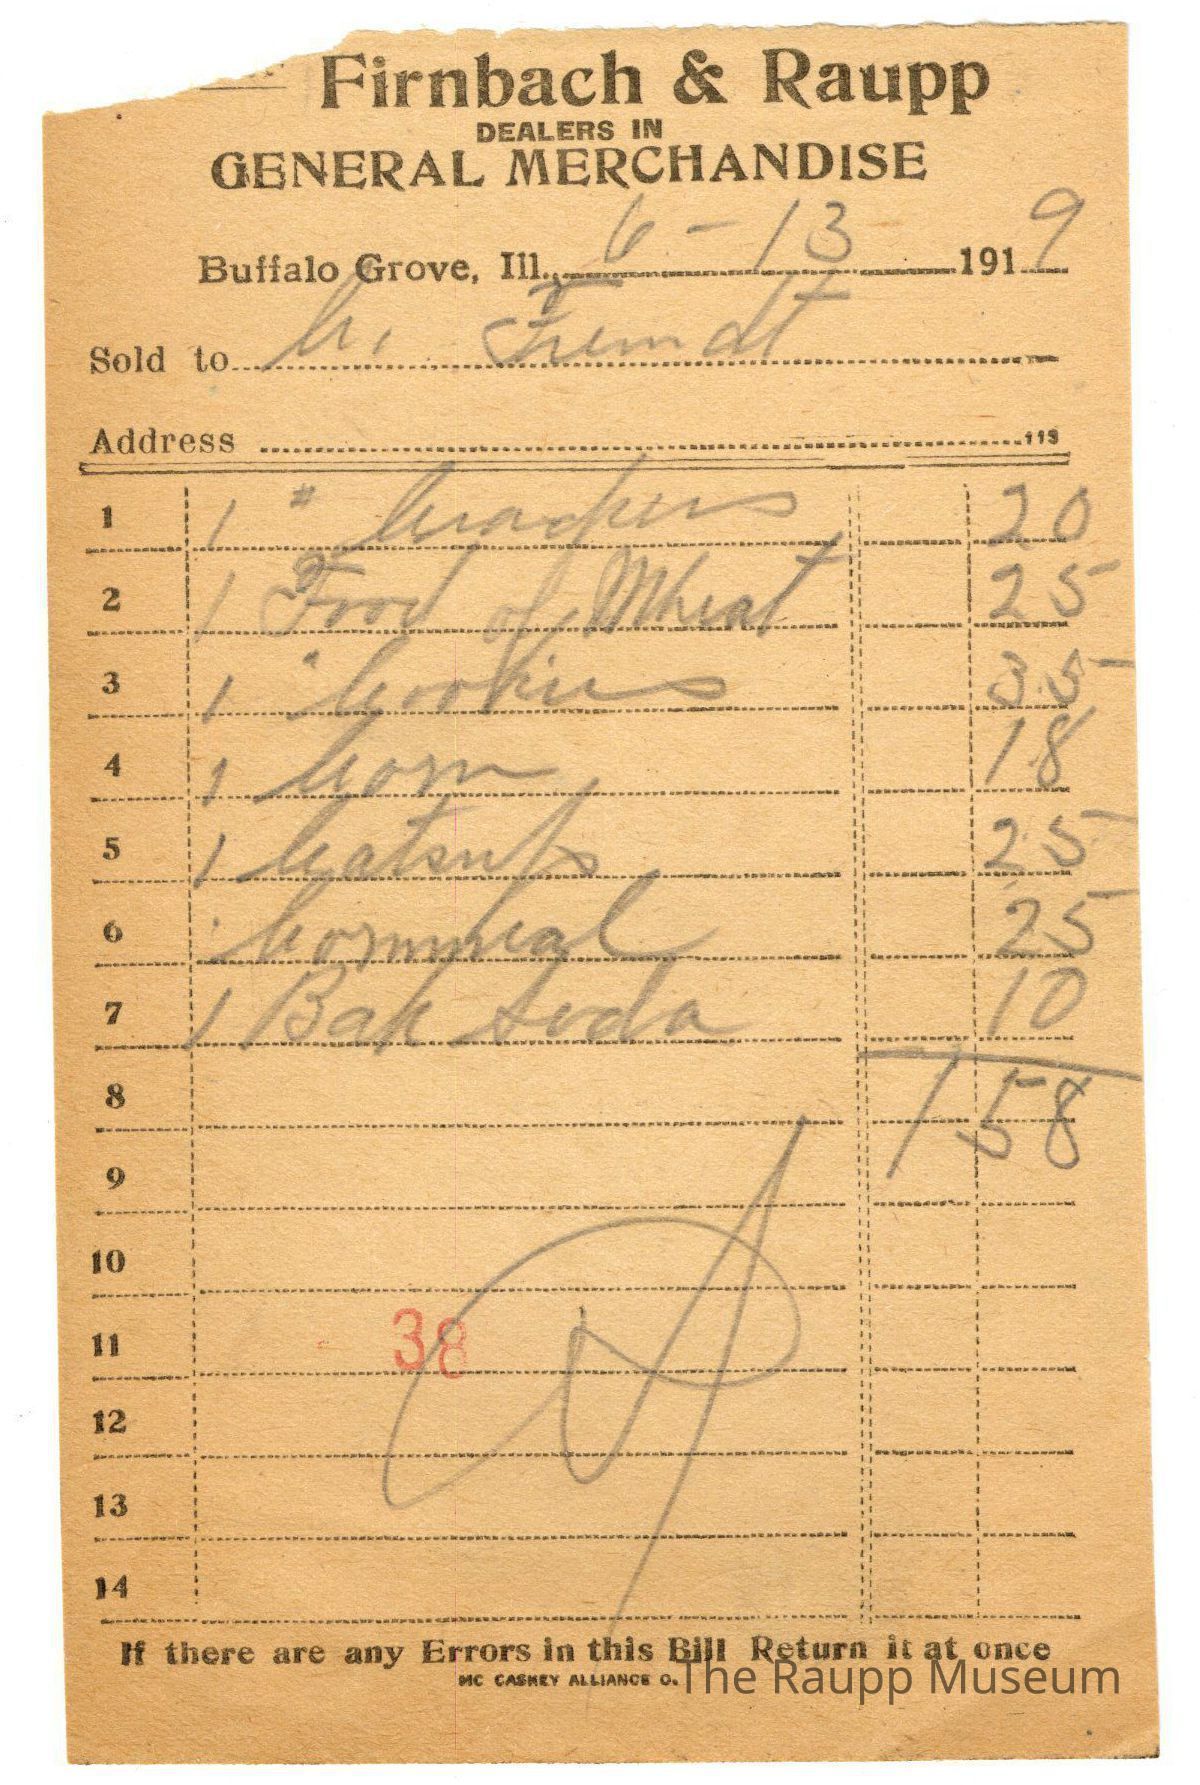 Firnbach & Raupp
DEALERS IN
GENERAL MERCHANDISE
Buffalo Grove, Ill. 6-13 1919
Sold to Fremdt
Address
1 1 # Crackers 20
2 1 Food of Wheat 25
3 1 " Cookies 35
4 1 Corn 18
5 1 Catsup 25
6 Cornmeal 25
7 1 Bak Soda 10
8 1 58
9
10
11 38
12
13
14
If there are any Errors in this Bill Return it at once
MC CASKEY ALLIANCE O.
The Raupp Museum